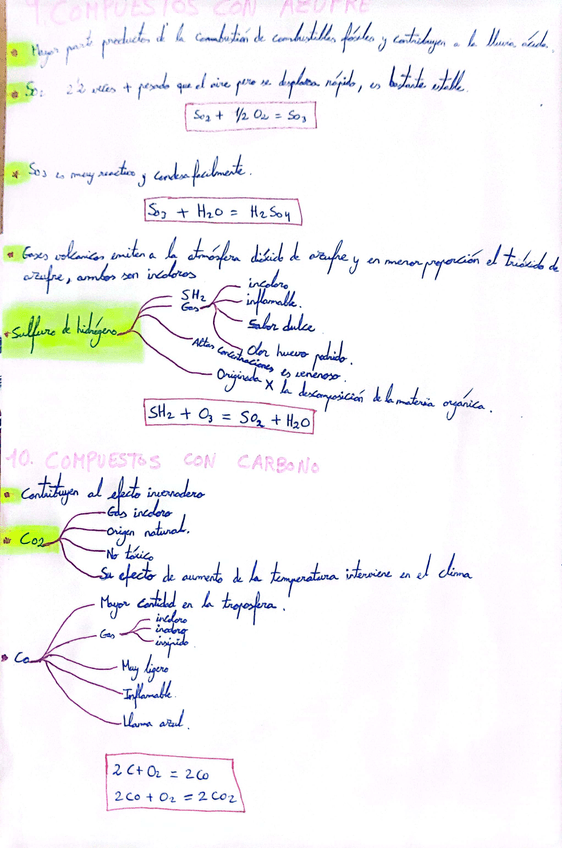 9. COMPUESTOS CON AZUFRE
Mayor parte productos d' la combustión de combustibles fósiles y contribuyen a la lluvia ácida.
SO2 2'2 veces + pesado que el aire pero se desplaza rápido, es bastante estable.
SO2 + 1/2 O2 = SO3
SO3 es muy reactivo y condensa facilmente.
SO3 + H2O = H2SO4
Gases volcanicos emiten a la atmósfera dióxido de azufre y en menor proporción el trióxido de
azufre, ambos son incoloros
Sulfuro de hidrógeno
SH2
Gas
incoloro
inflamable.
Sabor dulce
Olor huevo podrido.
Altas concentraciones es venenoso.
Originada X la descomposición de la materia orgánica.
SH2 + O3 = SO2 + H2O
10. COMPUESTOS CON CARBONO
Contribuyen al efecto invernadero
CO2
Gas incoloro
Origen natural.
No tóxico
Su efecto de aumento de la temperatura interviene en el clima
Co
Mayor cantidad en la troposfera.
Gas
incoloro
inodoro
insípido
Muy ligero
Inflamable.
Llama azul.
2C + O2 = 2CO
2CO + O2 = 2CO2